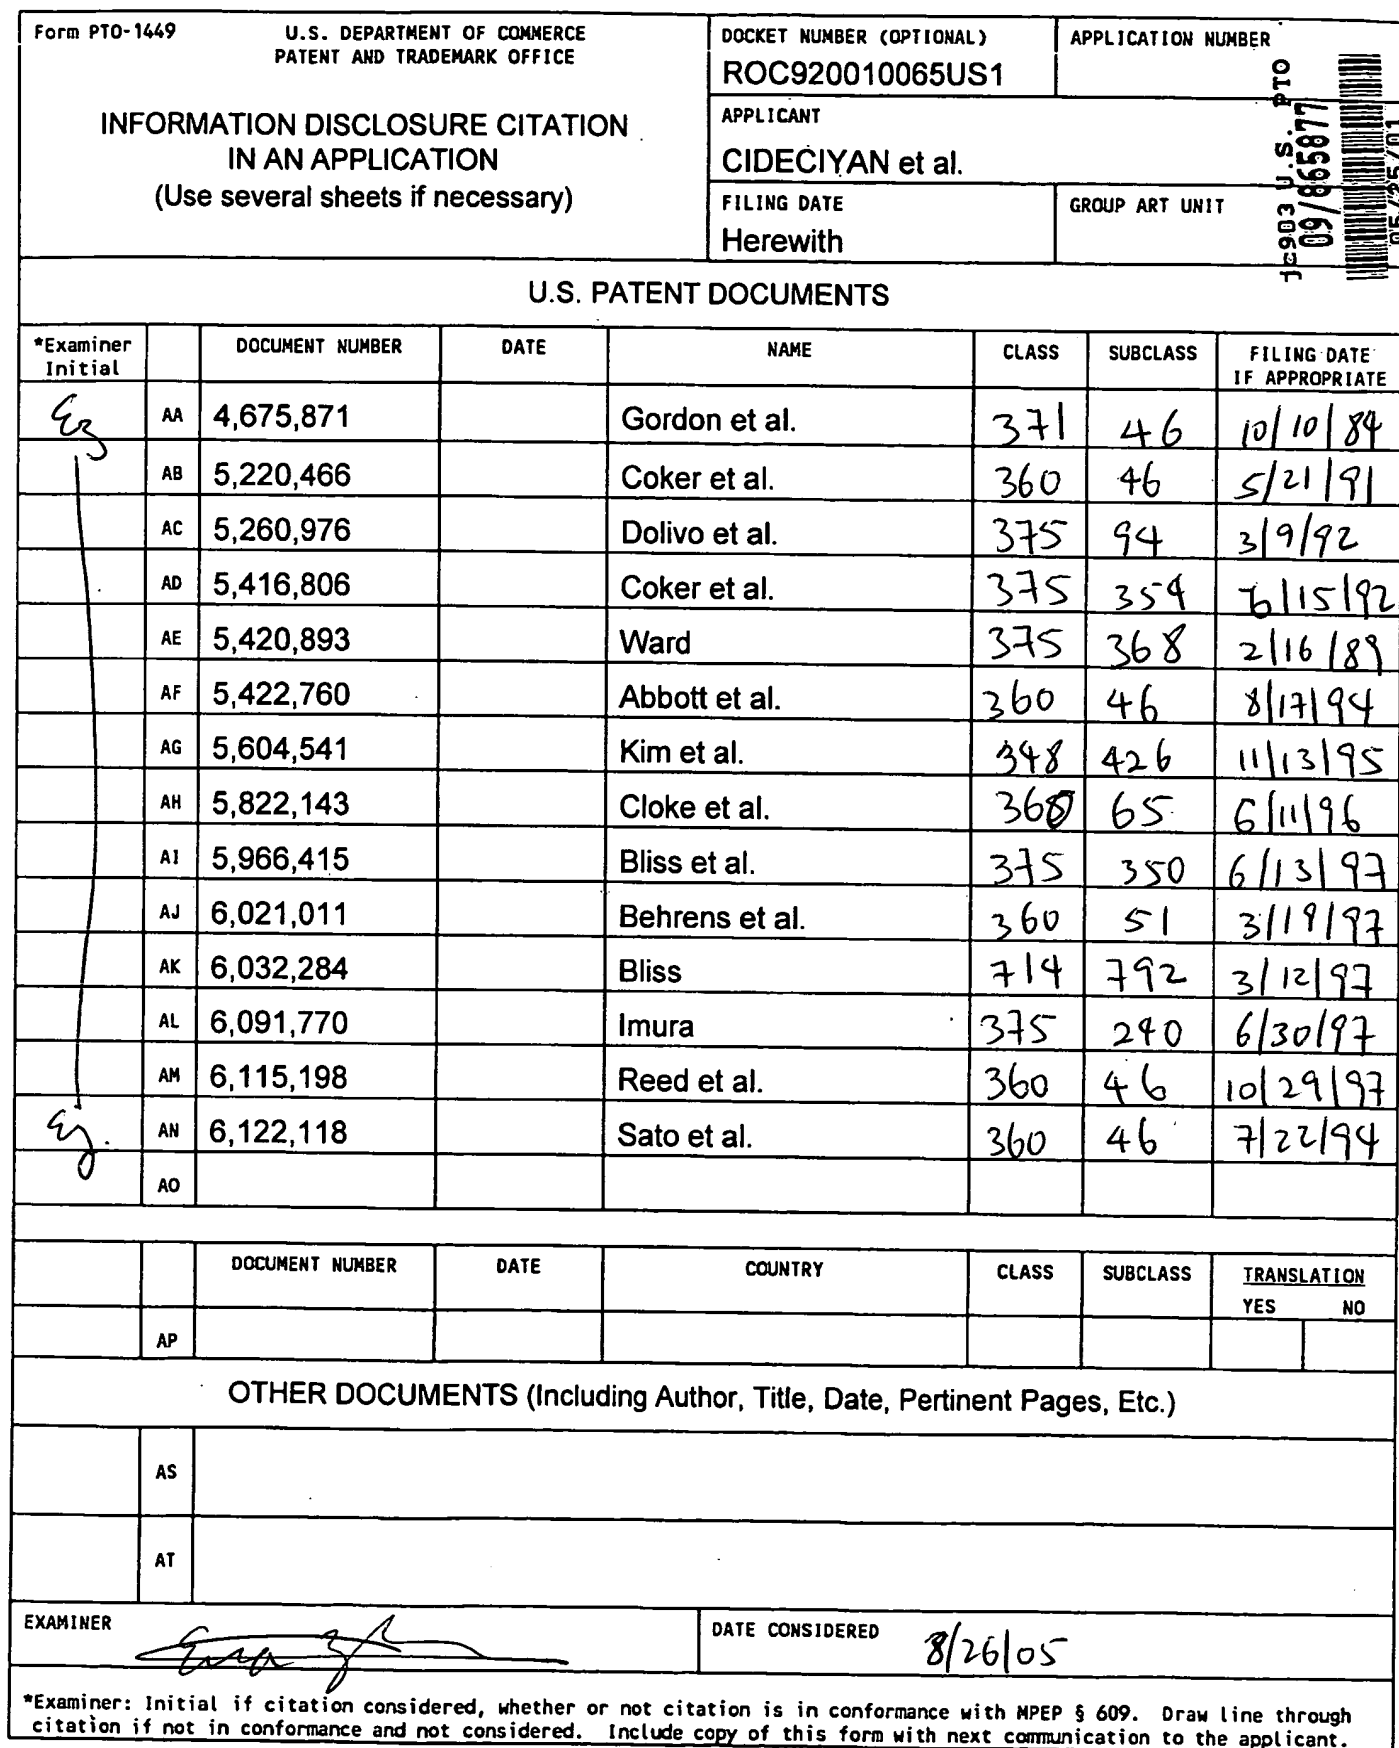 Form PTO-1449
U.S. DEPARTMENT OF COMMERCE
PATENT AND TRADEMARK OFFICE
INFORMATION DISCLOSURE CITATION
IN AN APPLICATION
(Use several sheets if necessary)
DOCKET NUMBER (OPTIONAL)
ROC920010065US1
APPLICATION NUMBER
APPLICANT
CIDECIYAN et al.
FILING DATE
Herewith
GROUP ART UNIT
jc903 U.S. PTO
09/865877
05/25/01
U.S. PATENT DOCUMENTS
*Examiner Initial DOCUMENT NUMBER DATE NAME CLASS SUBCLASS FILING DATE IF APPROPRIATE
Ez AA 4,675,871 Gordon et al. 371 46 10/10/84
AB 5,220,466 Coker et al. 360 46 5/21/91
AC 5,260,976 Dolivo et al. 375 94 3/9/92
AD 5,416,806 Coker et al. 375 354 6/15/92
AE 5,420,893 Ward 375 368 2/16/89
AF 5,422,760 Abbott et al. 360 46 8/17/94
AG 5,604,541 Kim et al. 348 426 11/13/95
AH 5,822,143 Cloke et al. 360 65 6/11/96
AI 5,966,415 Bliss et al. 375 350 6/13/97
AJ 6,021,011 Behrens et al. 360 51 3/19/97
AK 6,032,284 Bliss 714 792 3/12/97
AL 6,091,770 Imura 375 240 6/30/97
AM 6,115,198 Reed et al. 360 46 10/29/97
Ez. AN 6,122,118 Sato et al. 360 46 7/22/94
AO
DOCUMENT NUMBER DATE COUNTRY CLASS SUBCLASS TRANSLATION
YES NO
AP
OTHER DOCUMENTS (Including Author, Title, Date, Pertinent Pages, Etc.)
AS
AT
EXAMINER
DATE CONSIDERED 8/26/05
*Examiner: Initial if citation considered, whether or not citation is in conformance with MPEP § 609. Draw line through
citation if not in conformance and not considered. Include copy of this form with next communication to the applicant.